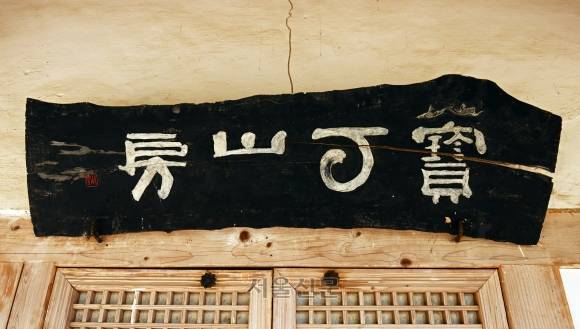 寶丁山房
서울신문